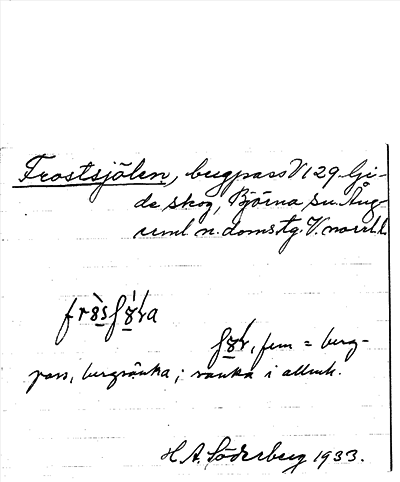 Frostsjölen, bergpass V 129 Gi-
de skog, Björna sn. Ång-
erml n. domstg. V. norrl.
bergpass, fem = berg-
pass, bergsänka; sänka i allmh.
H. A. Söderberg 1933.